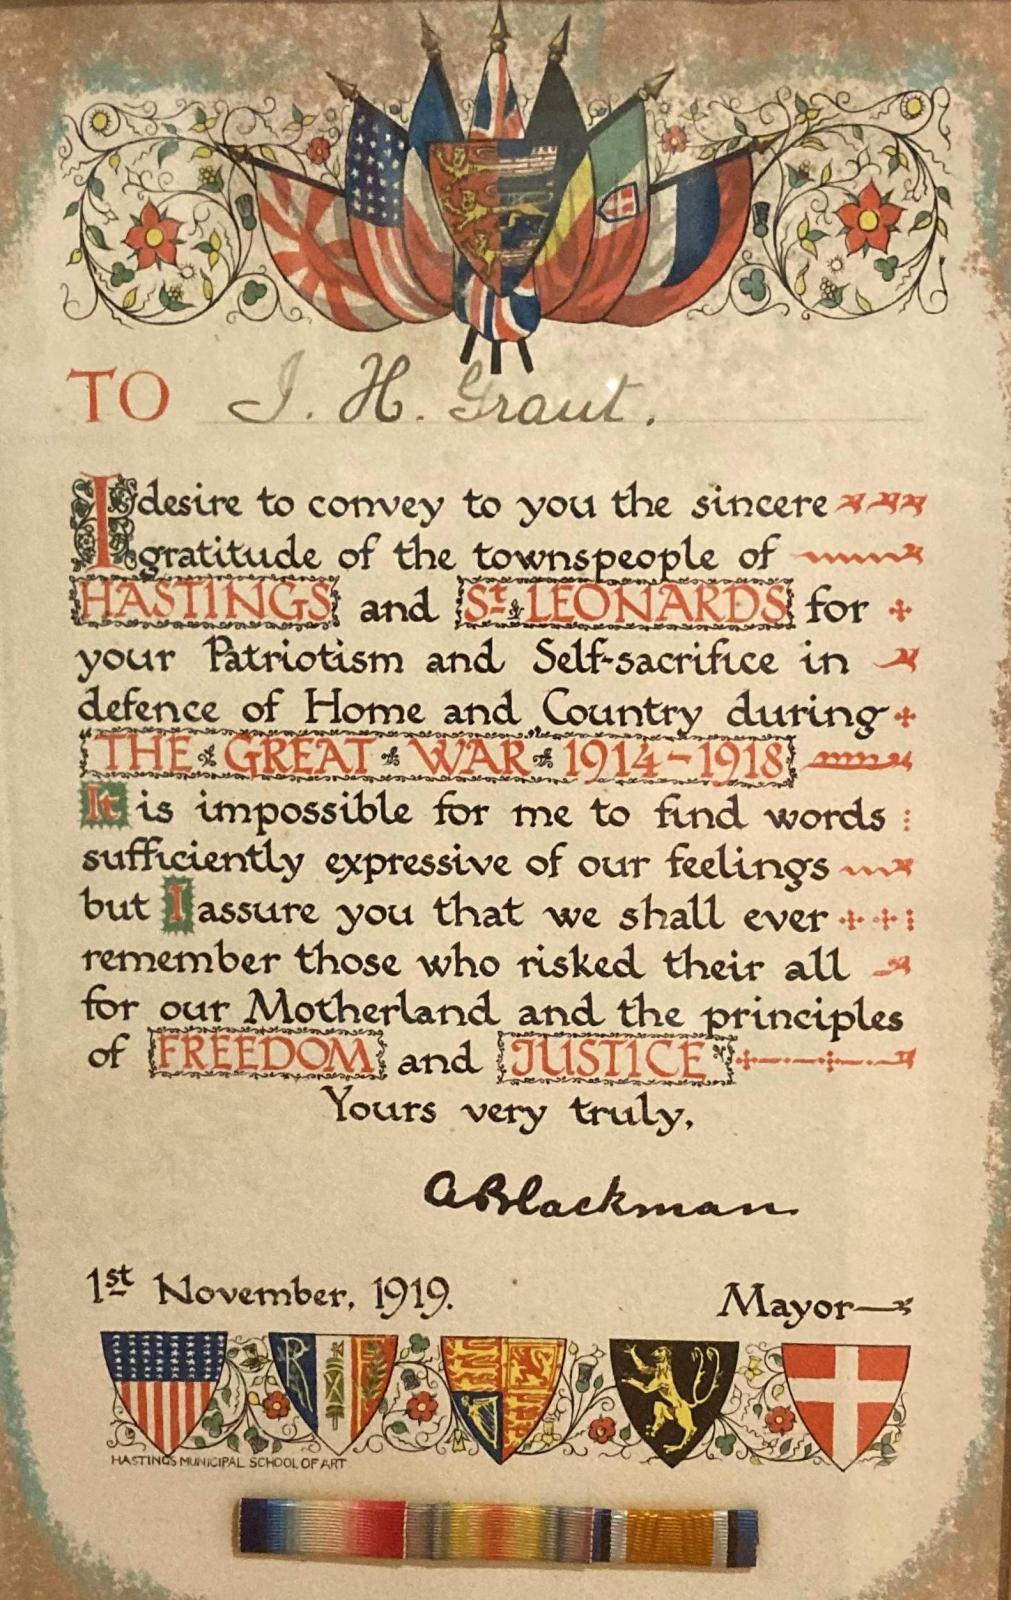 TO J. H. Grant.
I desire to convey to you the sincere
gratitude of the townspeople of
HASTINGS and St LEONARDS for
your Patriotism and Self-sacrifice in
defence of Home and Country during
THE GREAT WAR 1914-1918
It is impossible for me to find words
sufficiently expressive of our feelings
but I assure you that we shall ever
remember those who risked their all
for our Motherland and the principles
of FREEDOM and JUSTICE
Yours very truly,
A Blackman
1st November, 1919. Mayor
R
HASTINGS MUNICIPAL SCHOOL OF ART